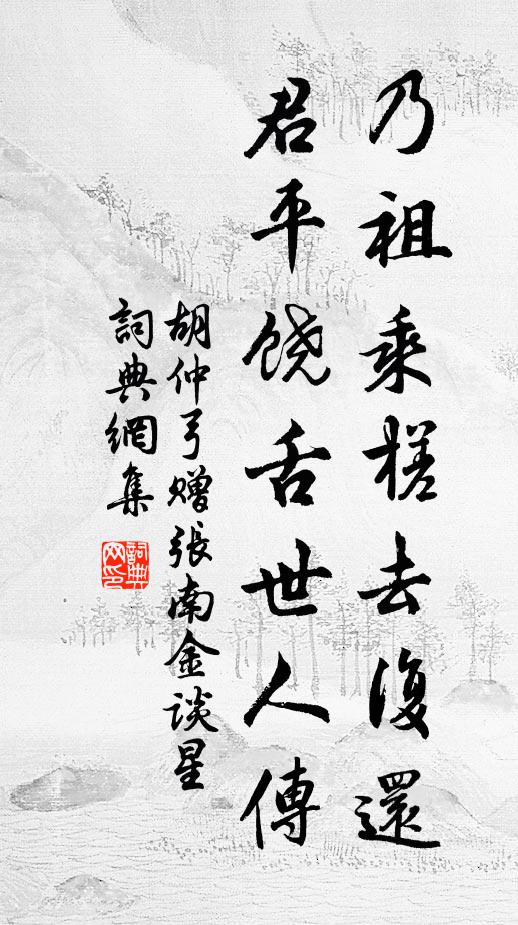 乃祖乘槎去復還
君平饶舌世人傳
胡仲弓赠張南金谈星
詞典網集
詞典
网印